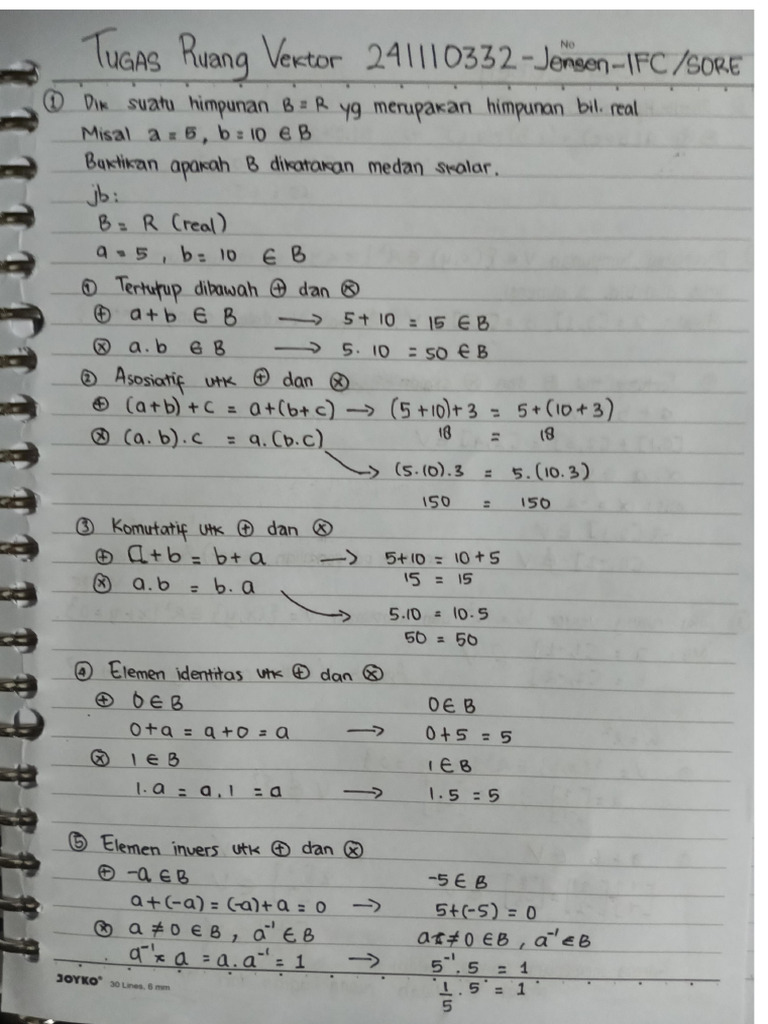 No
TUGAS Ruang Vektor 241110332-Jensen-IFC/SORE
① Dik suatu himpunan B = R yg merupakan himpunan bil. real
Misal a = 5, b = 10 ∈ B
Buktikan apakah B dikatakan medan skalar.
jb:
B = R (real)
a = 5, b = 10 ∈ B
① Tertutup dibawah ⊕ dan ⊗
⊕ a+b ∈ B → 5+10 = 15 ∈ B
⊗ a.b ∈ B → 5.10 = 50 ∈ B
② Asosiatif utk ⊕ dan ⊗
⊕ (a+b)+c = a+(b+c) → (5+10)+3 = 5+(10+3)
18 = 18
⊗ (a.b).c = a.(b.c)
→ (5.10).3 = 5.(10.3)
150 = 150
③ Komutatif utk ⊕ dan ⊗
⊕ a+b = b+a → 5+10 = 10+5
15 = 15
⊗ a.b = b.a
→ 5.10 = 10.5
50 = 50
④ Elemen identitas utk ⊕ dan ⊗
⊕ 0 ∈ B 0 ∈ B
0+a = a+0 = a → 0+5 = 5
⊗ 1 ∈ B 1 ∈ B
1.a = a.1 = a → 1.5 = 5
⑤ Elemen invers utk ⊕ dan ⊗
⊕ -a ∈ B -5 ∈ B
a+(-a) = (-a)+a = 0 → 5+(-5) = 0
⊗ a ≠ 0 ∈ B, a⁻¹ ∈ B a ≠ 0 ∈ B, a⁻¹ ∈ B
a⁻¹ × a = a.a⁻¹ = 1 → 5⁻¹.5 = 1
1/5 .5 = 1
JOYKO® 30 Lines, 6 mm